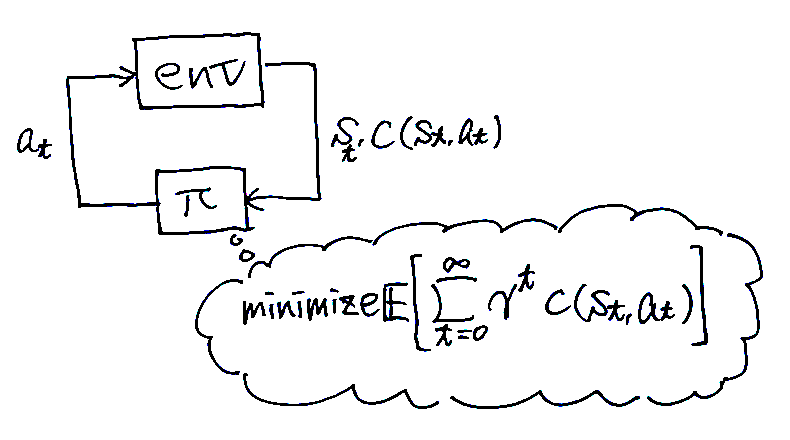 env
a_t
s_t, C(s_t, a_t)
π
minimize 𝔼[∑_{t=0}^{∞} γ^t C(s_t, a_t)]